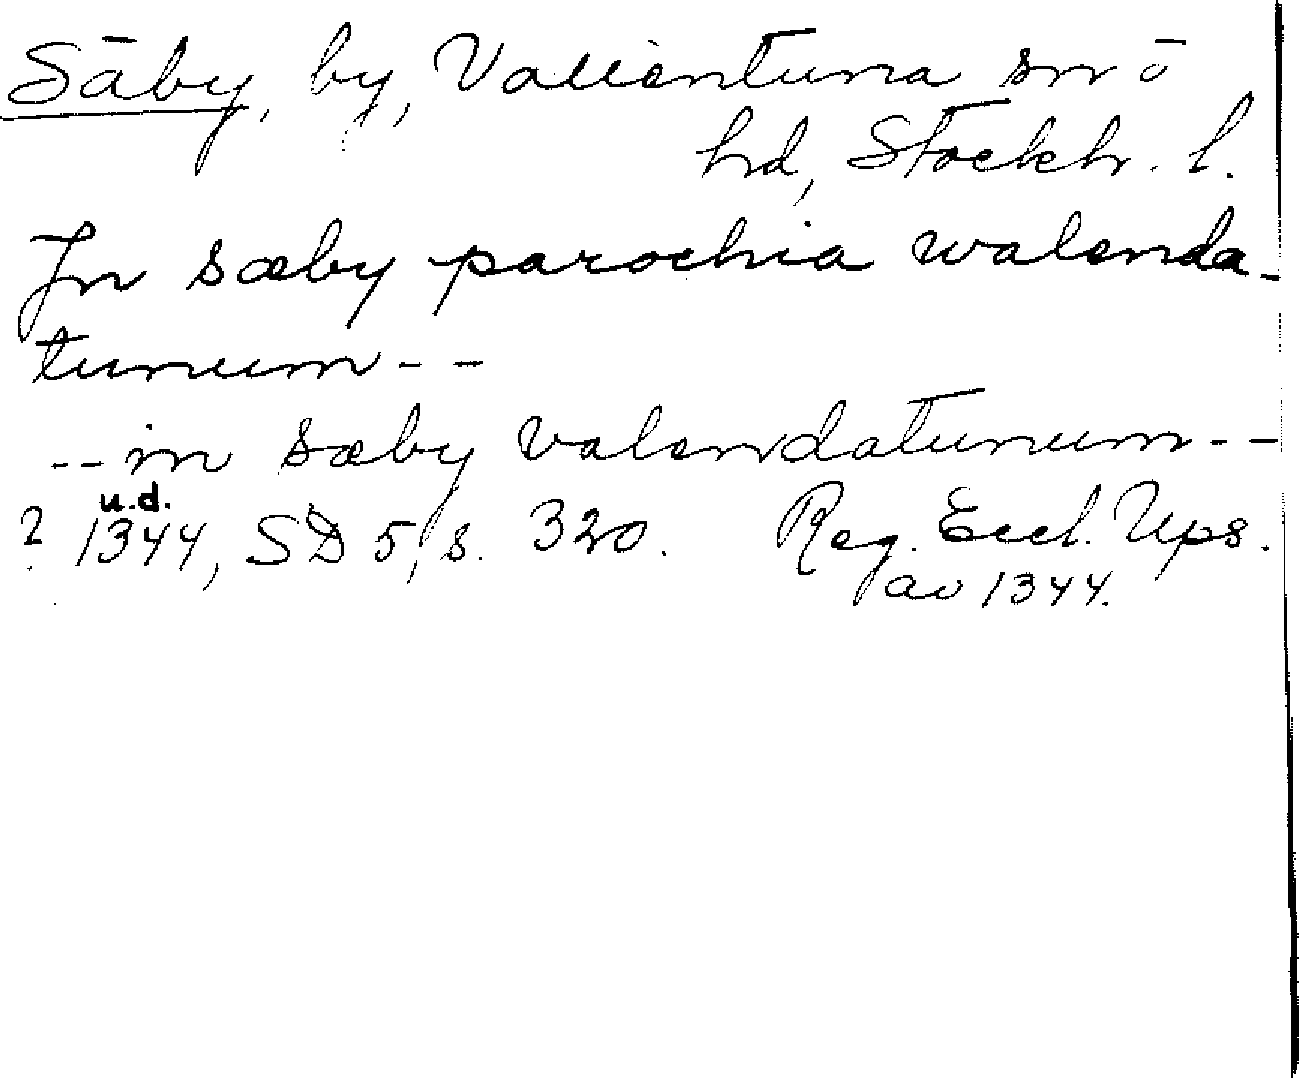 Säby, by, Vallentuna sn o
hd, Stockh. l.
In sæby parochia walenda-
tunum - -
- - in sæby valendatunum - -
u.d.
? 1344, SD 5, s. 320. Reg. Eccl. Ups.
av 1344.